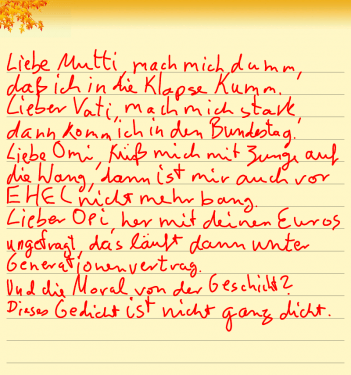 Liebe Mutti, mach mich dumm,
daß ich in die Klapse kumm.
Lieber Vati, mach mich stark,
dann komm ich in den Bundestag.
Liebe Omi, küß mich mit Zunge auf
die Wang, dann ist mir auch vor
EHEC nicht mehr bang.
Lieber Opi, her mit deinen Euros
ungefragt, das läuft dann unter
Generationenvertrag.
Und die Moral von der Geschicht?
Dieses Gedicht ist nicht ganz dicht.